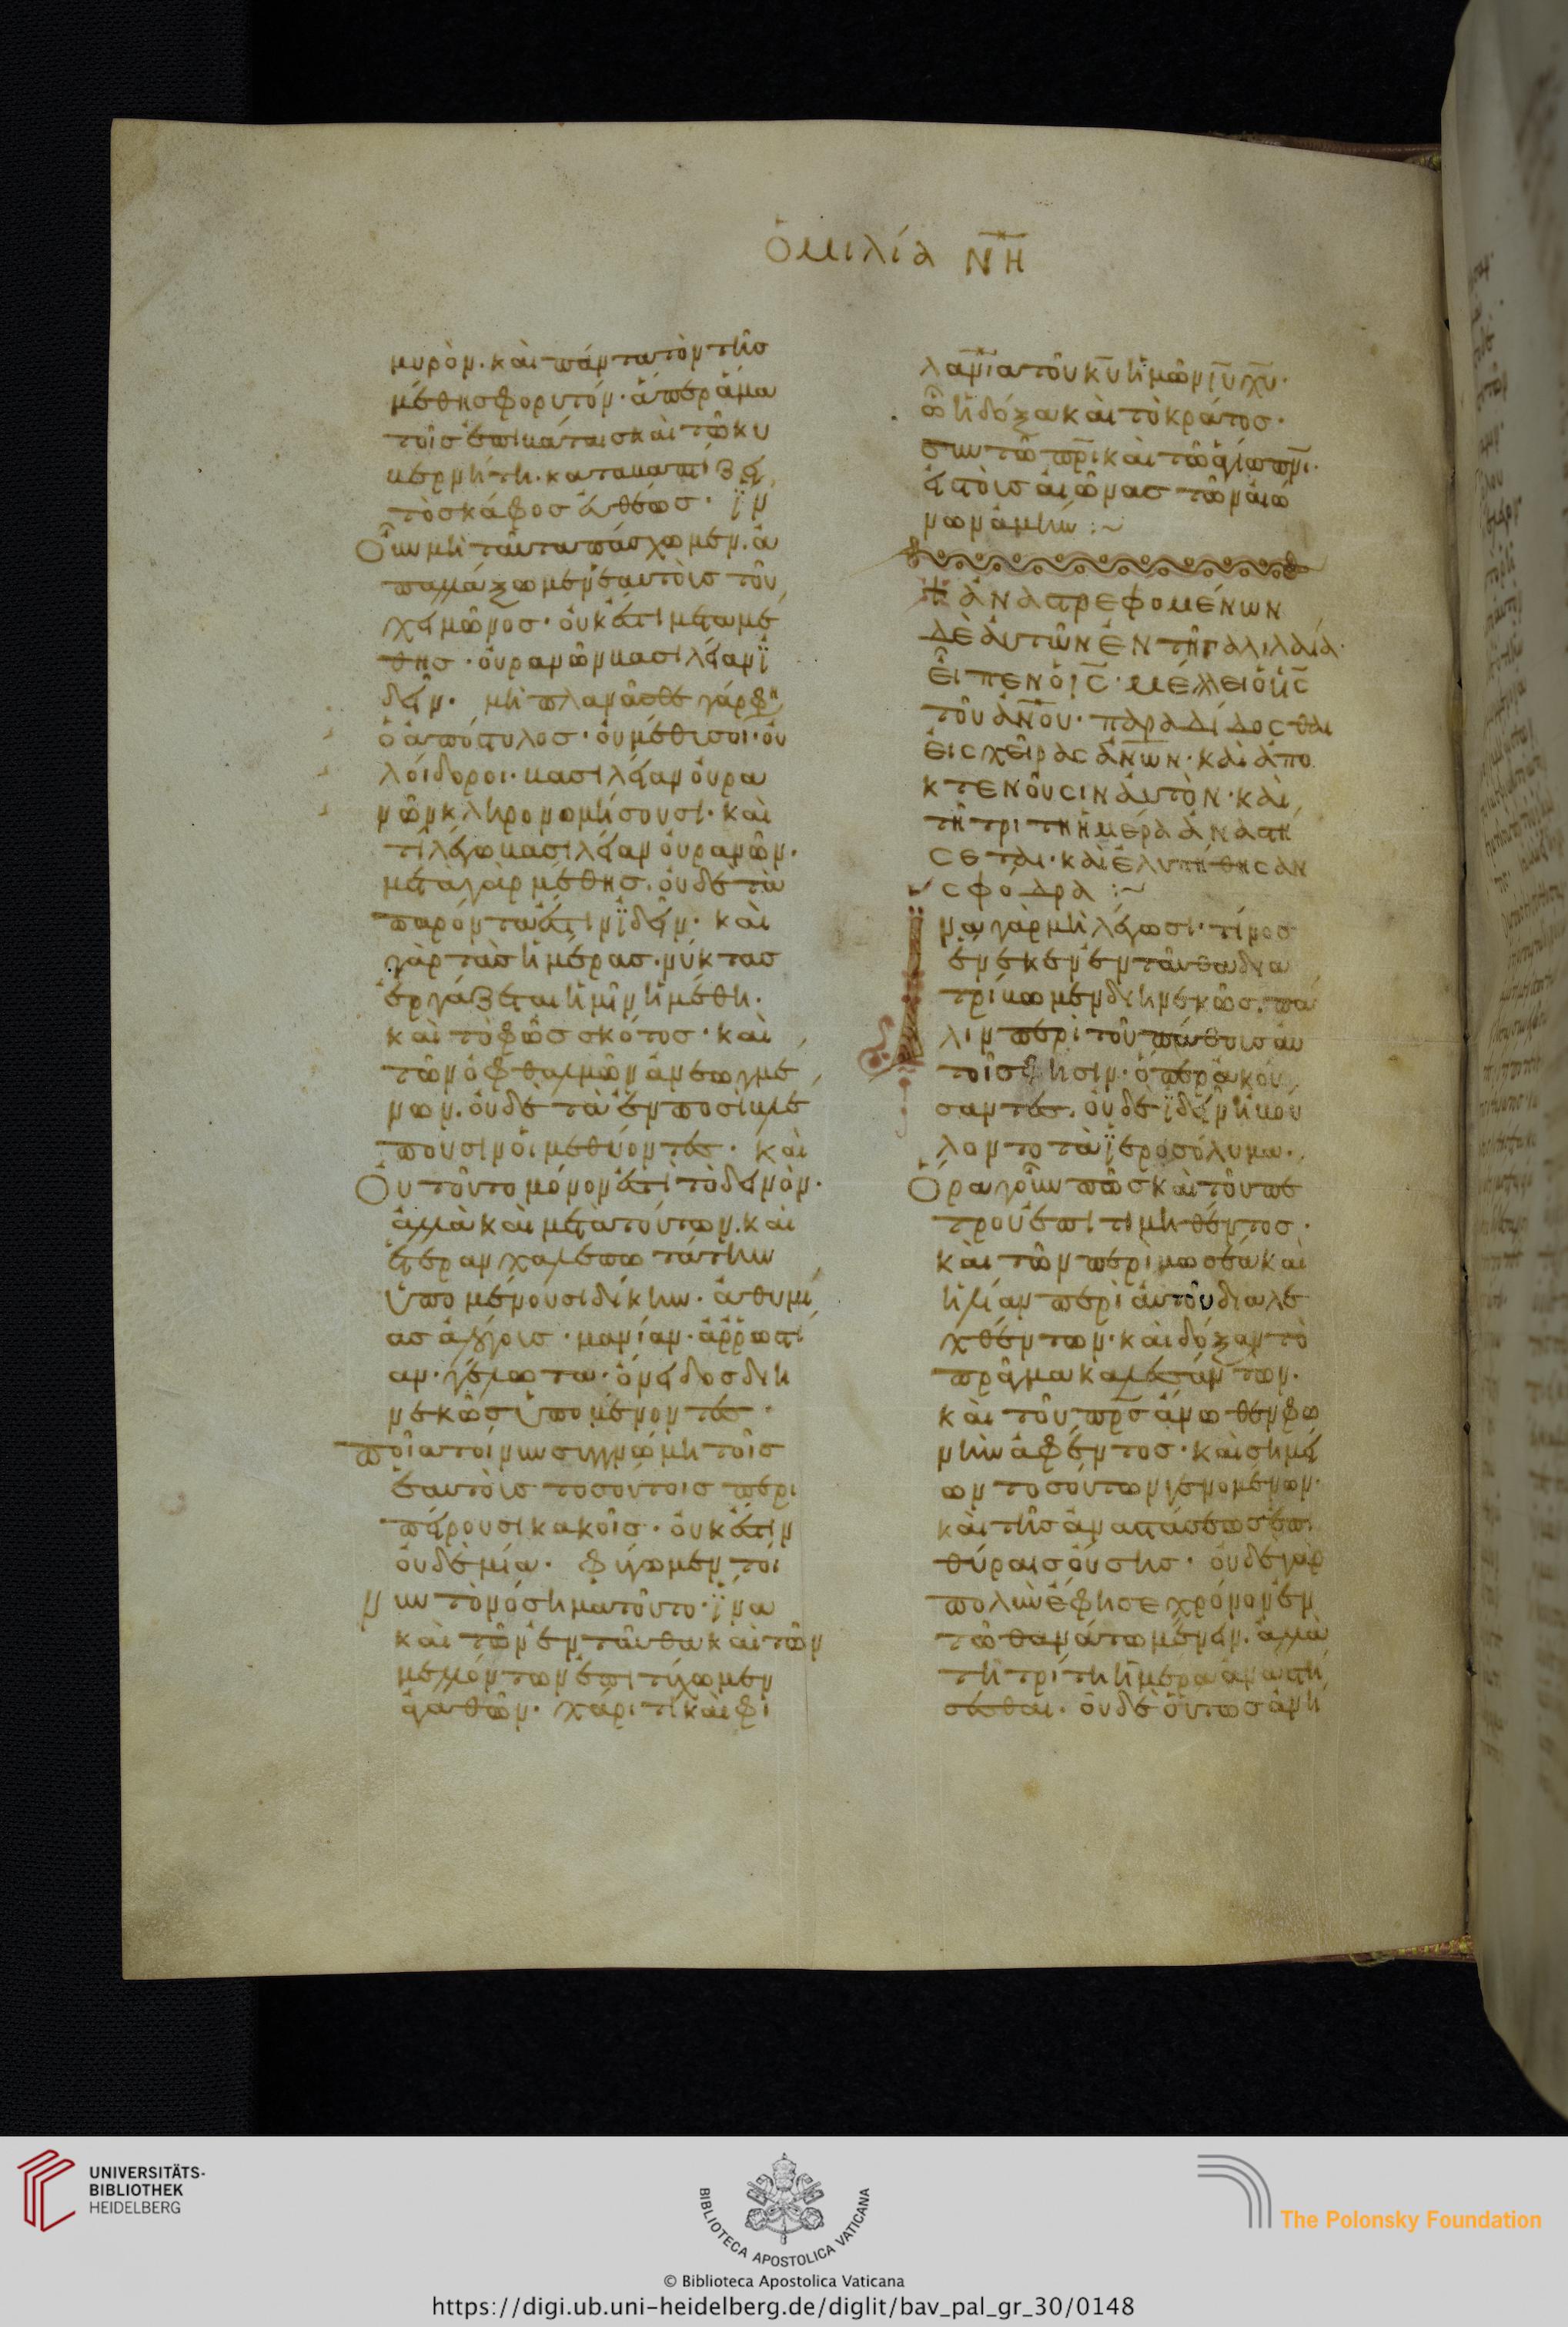 ὁμιλία ΝΗ
μυρὸν· καὶ πάντα τὸν τῆς
μέθης φορυτόν· ἅπερ ἅμα
τοῖς ἐπιβάταις καὶ τῶ κυ
βερνήτη· καταβαπτίζει
τὸ σκάφος εὐθέως· ἵν
Οὖν μὴ ταῦτα πάσχωμεν· ἀ
παλλάξωμεν ἑαυτοὺς τοῦ
χειμῶνος· οὐκ ἔστι μετὰ μέ
θης· οὐρανῶν βασιλείαν ἰ
δεῖν· μὴ πλανᾶσθε γάρ φη
ὁ ἀπόστολος· οὐ μέθυσοι· οὐ
λοίδοροι· βασιλείαν οὐρα
νῶν κληρονομήσουσι· καὶ
τί λέγω βασιλείαν οὐρανῶν·
μετὰ γὰρ μέθης· οὐδὲ τὰ
παρόντα ἔστιν ἰδεῖν· καὶ
γὰρ τὰς ἡμέρας· νύκτας
ἐργάζεται ἡμῖν ἡ μέθη·
καὶ τὸ φῶς σκότος· καὶ
τῶν ὀφθαλμῶν ἀνεωγμέ
νων· οὐδὲ τὰ ἐν ποσὶ βλέ
πουσιν οἱ μεθύοντες· καὶ
Οὐ τοῦτο μόνον ἐστὶ τὸ δεινὸν·
ἀλλὰ καὶ μετὰ τούτων· καὶ
ἑτέραν χαλεπωτάτην
ὑπομένουσι δίκην· ἀθυμί
ας ἀλόγους· μανίαν· ἀρρωστί
αν· γέλωτα· ὄνειδος διη
νεκῶς ὑπομένοντες·
ποία τοίνυν συγγνώμη τοῖς
ἑαυτοὺς τοσούτοις περι
πείρουσι κακοῖς· οὐκ ἔστιν
οὐδὲ μία· φύγωμεν τοί
νυν τὸ νόσημα τοῦτο· ἵνα
καὶ τῶν ἐνταῦθα καὶ τῶν
μελλόντων ἐπιτύχωμεν
ἀγαθῶν· χάριτι καὶ φι
λανίατοῦ κυ ἡμῶν ιυ χυ·
ᾧ ἡ δόξα καὶ τὸ κράτος·
συν τῶ πρι καὶ τῶ ἁγίω πνι·
εἰς τοὺς αἰῶνας τῶν αἰώ
νων ἀμήν :~
ἀναστρεφομένων
δὲ αὐτῶν ἐν τῆ γαλιλαία·
εἶπεν ὁ ις· μέλλει ὁ υς
τοῦ ἀνου· παραδίδοσθαι
εἰς χεῖρας ἀνων· καὶ ἀπο
κτενοῦσιν αὐτὸν· καὶ
τῆ τρίτη ἡμέρα ἀναστή
σεται· καὶ ἐλυπήθησαν
σφόδρα :~
να γὰρ μὴ λέγωσι· τίνος
ἕνεκεν ἐνταῦθα δια
τρίβωμεν διηνεκῶς· πά
λιν περὶ τοῦ πάθους αὐ
τοῖς φησιν· ὅπερ ἀκού
σαντες· οὐδὲ ἰδεῖν ἠβού
λοντο τὰ ἱεροσόλυμα·
Ὅρα γοῦν πῶς καὶ τοῦ πέ
τρου ἐπιτιμηθέντος·
καὶ τῶν περὶ μωσέα καὶ
ἠλίαν περὶ αὐτοῦ διαλε
χθέντων· καὶ δόξαν τὸ
πρᾶγμα καλεσάντων·
καὶ τοῦ πρς ἄνωθεν φω
νὴν ἀφέντος· καὶ σημεί
ων τοσούτων γενομένων·
καὶ τῆς ἀναστάσεως ἐπι
θύραις οὔσης· οὐδὲ γὰρ
πολὺν ἔφησε χρόνον ἐν
τῶ θανάτω μένειν· ἀλλὰ
τῆ τρίτη ἡμέρα ἀναστή
σεσθαι· οὐδὲ οὕτως ἀνή
UNIVERSITÄTS-
BIBLIOTHEK
HEIDELBERG
BIBLIOTECA APOSTOLICA VATICANA
The Polonsky Foundation
© Biblioteca Apostolica Vaticana
https://digi.ub.uni-heidelberg.de/diglit/bav_pal_gr_30/0148